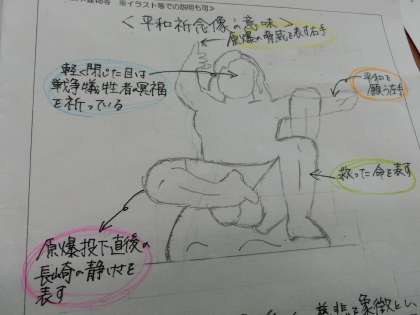 ※イラスト等での説明も可＞
＜平和祈念像の意味＞
原爆の脅威を表す右手
軽く閉じた目は
戦争犠牲者の冥福
を祈っている
平和を
願う左手
救った命を表す
原爆投下直後の
長崎の静けさを
表す
慈悲を象徴とし